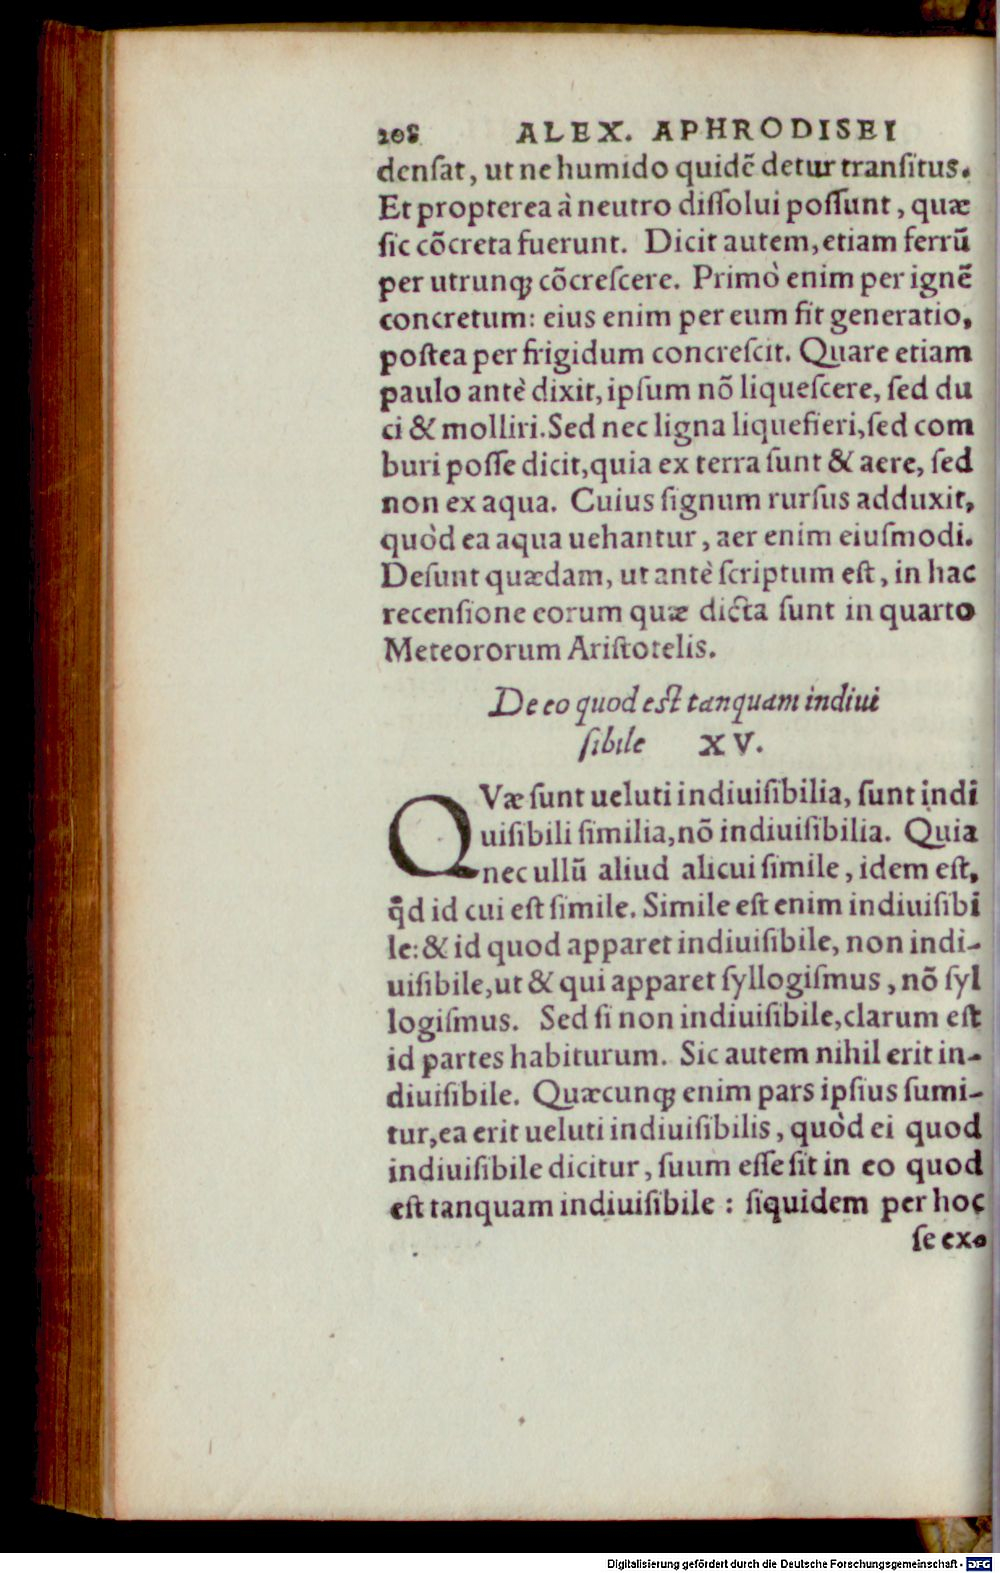 208 ALEX. APHRODISEI
denſat, ut ne humido quidẽ detur tranſitus.
Et propterea à neutro diſſolui poſſunt, quæ
ſic cõcreta fuerunt. Dicit autem, etiam ferrũ
per utrunqꝫ cõcreſcere. Primò enim per ignẽ
concretum: eius enim per eum fit generatio,
poſtea per frigidum concreſcit. Quare etiam
paulo antè dixit, ipſum nõ liqueſcere, ſed du
ci & molliri. Sed nec ligna liquefieri, ſed com
buri poſſe dicit, quia ex terra ſunt & aere, ſed
non ex aqua. Cuius ſignum rurſus adduxit,
quòd ea aqua uehantur, aer enim eiuſmodi.
Deſunt quædam, ut antè ſcriptum eſt, in hac
recenſione eorum quæ dicta ſunt in quarto
Meteororum Ariſtotelis.
De eo quod eſt tanquam indiui
ſibile XV.
QVæ ſunt ueluti indiuiſibilia, ſunt indi
uiſibili ſimilia, nõ indiuiſibilia. Quia
nec ullũ aliud alicui ſimile, idem eſt,
q̊d id cui eſt ſimile. Simile eſt enim indiuiſibi
le: & id quod apparet indiuiſibile, non indi-
uiſibile, ut & qui apparet ſyllogiſmus, nõ ſyl
logiſmus. Sed ſi non indiuiſibile, clarum eſt
id partes habiturum. Sic autem nihil erit in-
diuiſibile. Quæcunqꝫ enim pars ipſius ſumi-
tur, ea erit ueluti indiuiſibilis, quòd ei quod
indiuiſibile dicitur, ſuum eſſe ſit in eo quod
eſt tanquam indiuiſibile: ſiquidem per hoc
ſe ex-
Digitalisierung gefördert durch die Deutsche Forschungsgemeinschaft - DFG